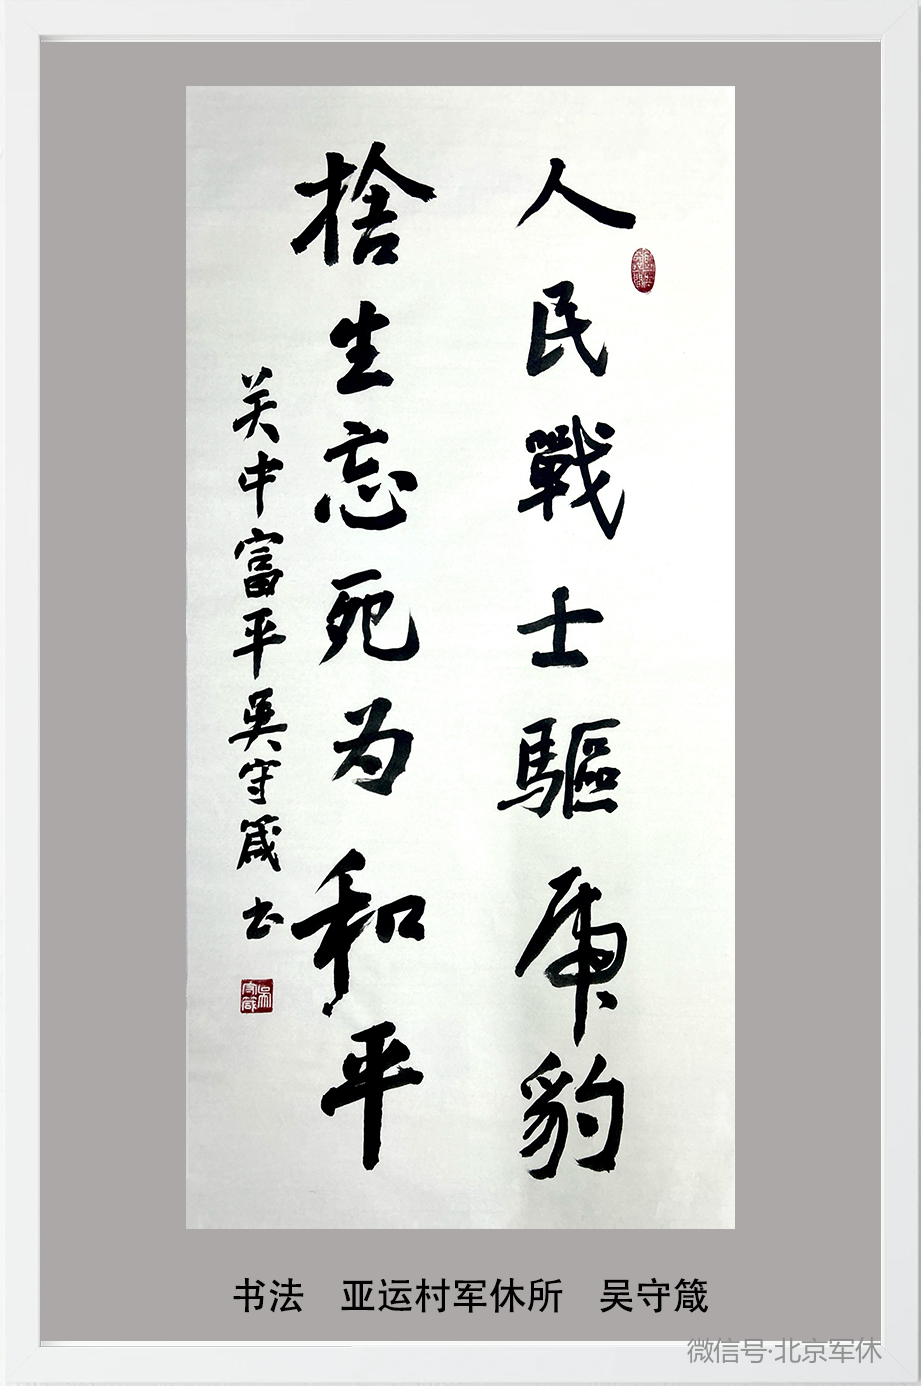 人民戰士驅虎豹
捨生忘死为和平
关中富平吴守箴书
吴守箴
书法 亚运村军休所 吴守箴
微信号·北京军休